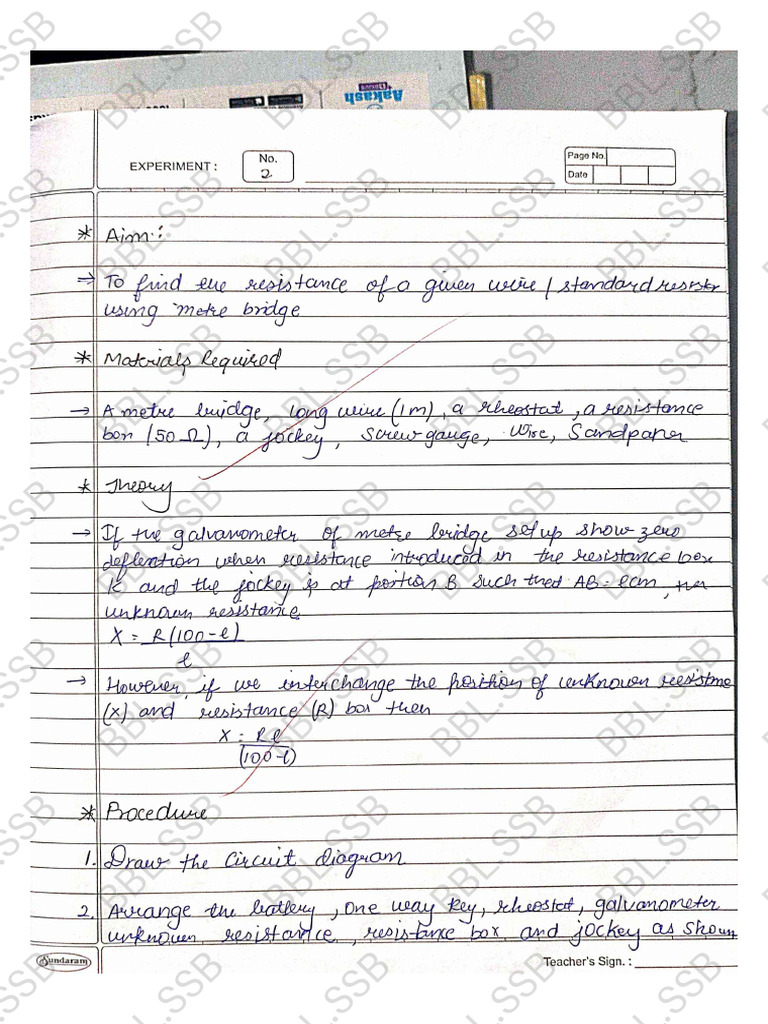 Aakash
EXPERIMENT :
No.
2
Page No.
Date
* Aim :
⇒ To find the resistance of a given wire / standard resistor
using metre bridge
* Materials Required
→ A metre bridge, long wire (1m), a rheostat, a resistance
box (50 Ω), a jockey, Screw gauge, Wire, Sandpaper
* Theory
→ If the galvanometer of metre bridge set up show zero
deflection when resistance introduced in the resistance box
is and the jockey is at position B such that AB = lcm, the
unknown resistance
X = R(100-l)
l
→ However, if we interchange the position of unknown resistance
(X) and resistance (R) box then
X = Rl
(100-l)
* Procedure
1. Draw the Circuit diagram
2. Arrange the battery, One way key, rheostat, galvanometer
unknown resistance, resistance box and jockey as shown
Sundaram
Teacher's Sign. :
BBL.SSB